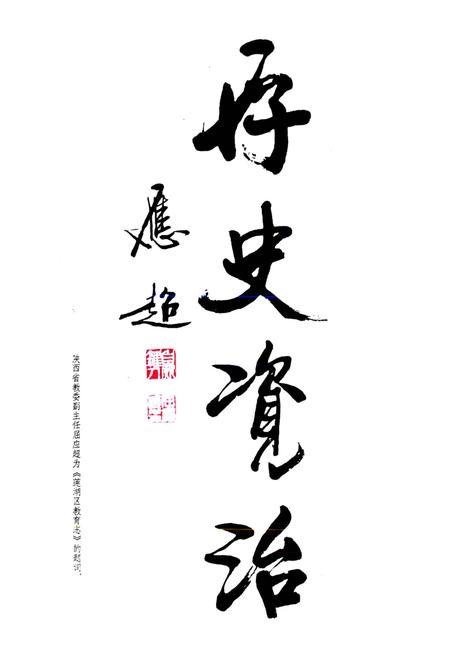 存史資治
應超
陕西省教委副主任屈应超为《莲湖区教育志》的题词。